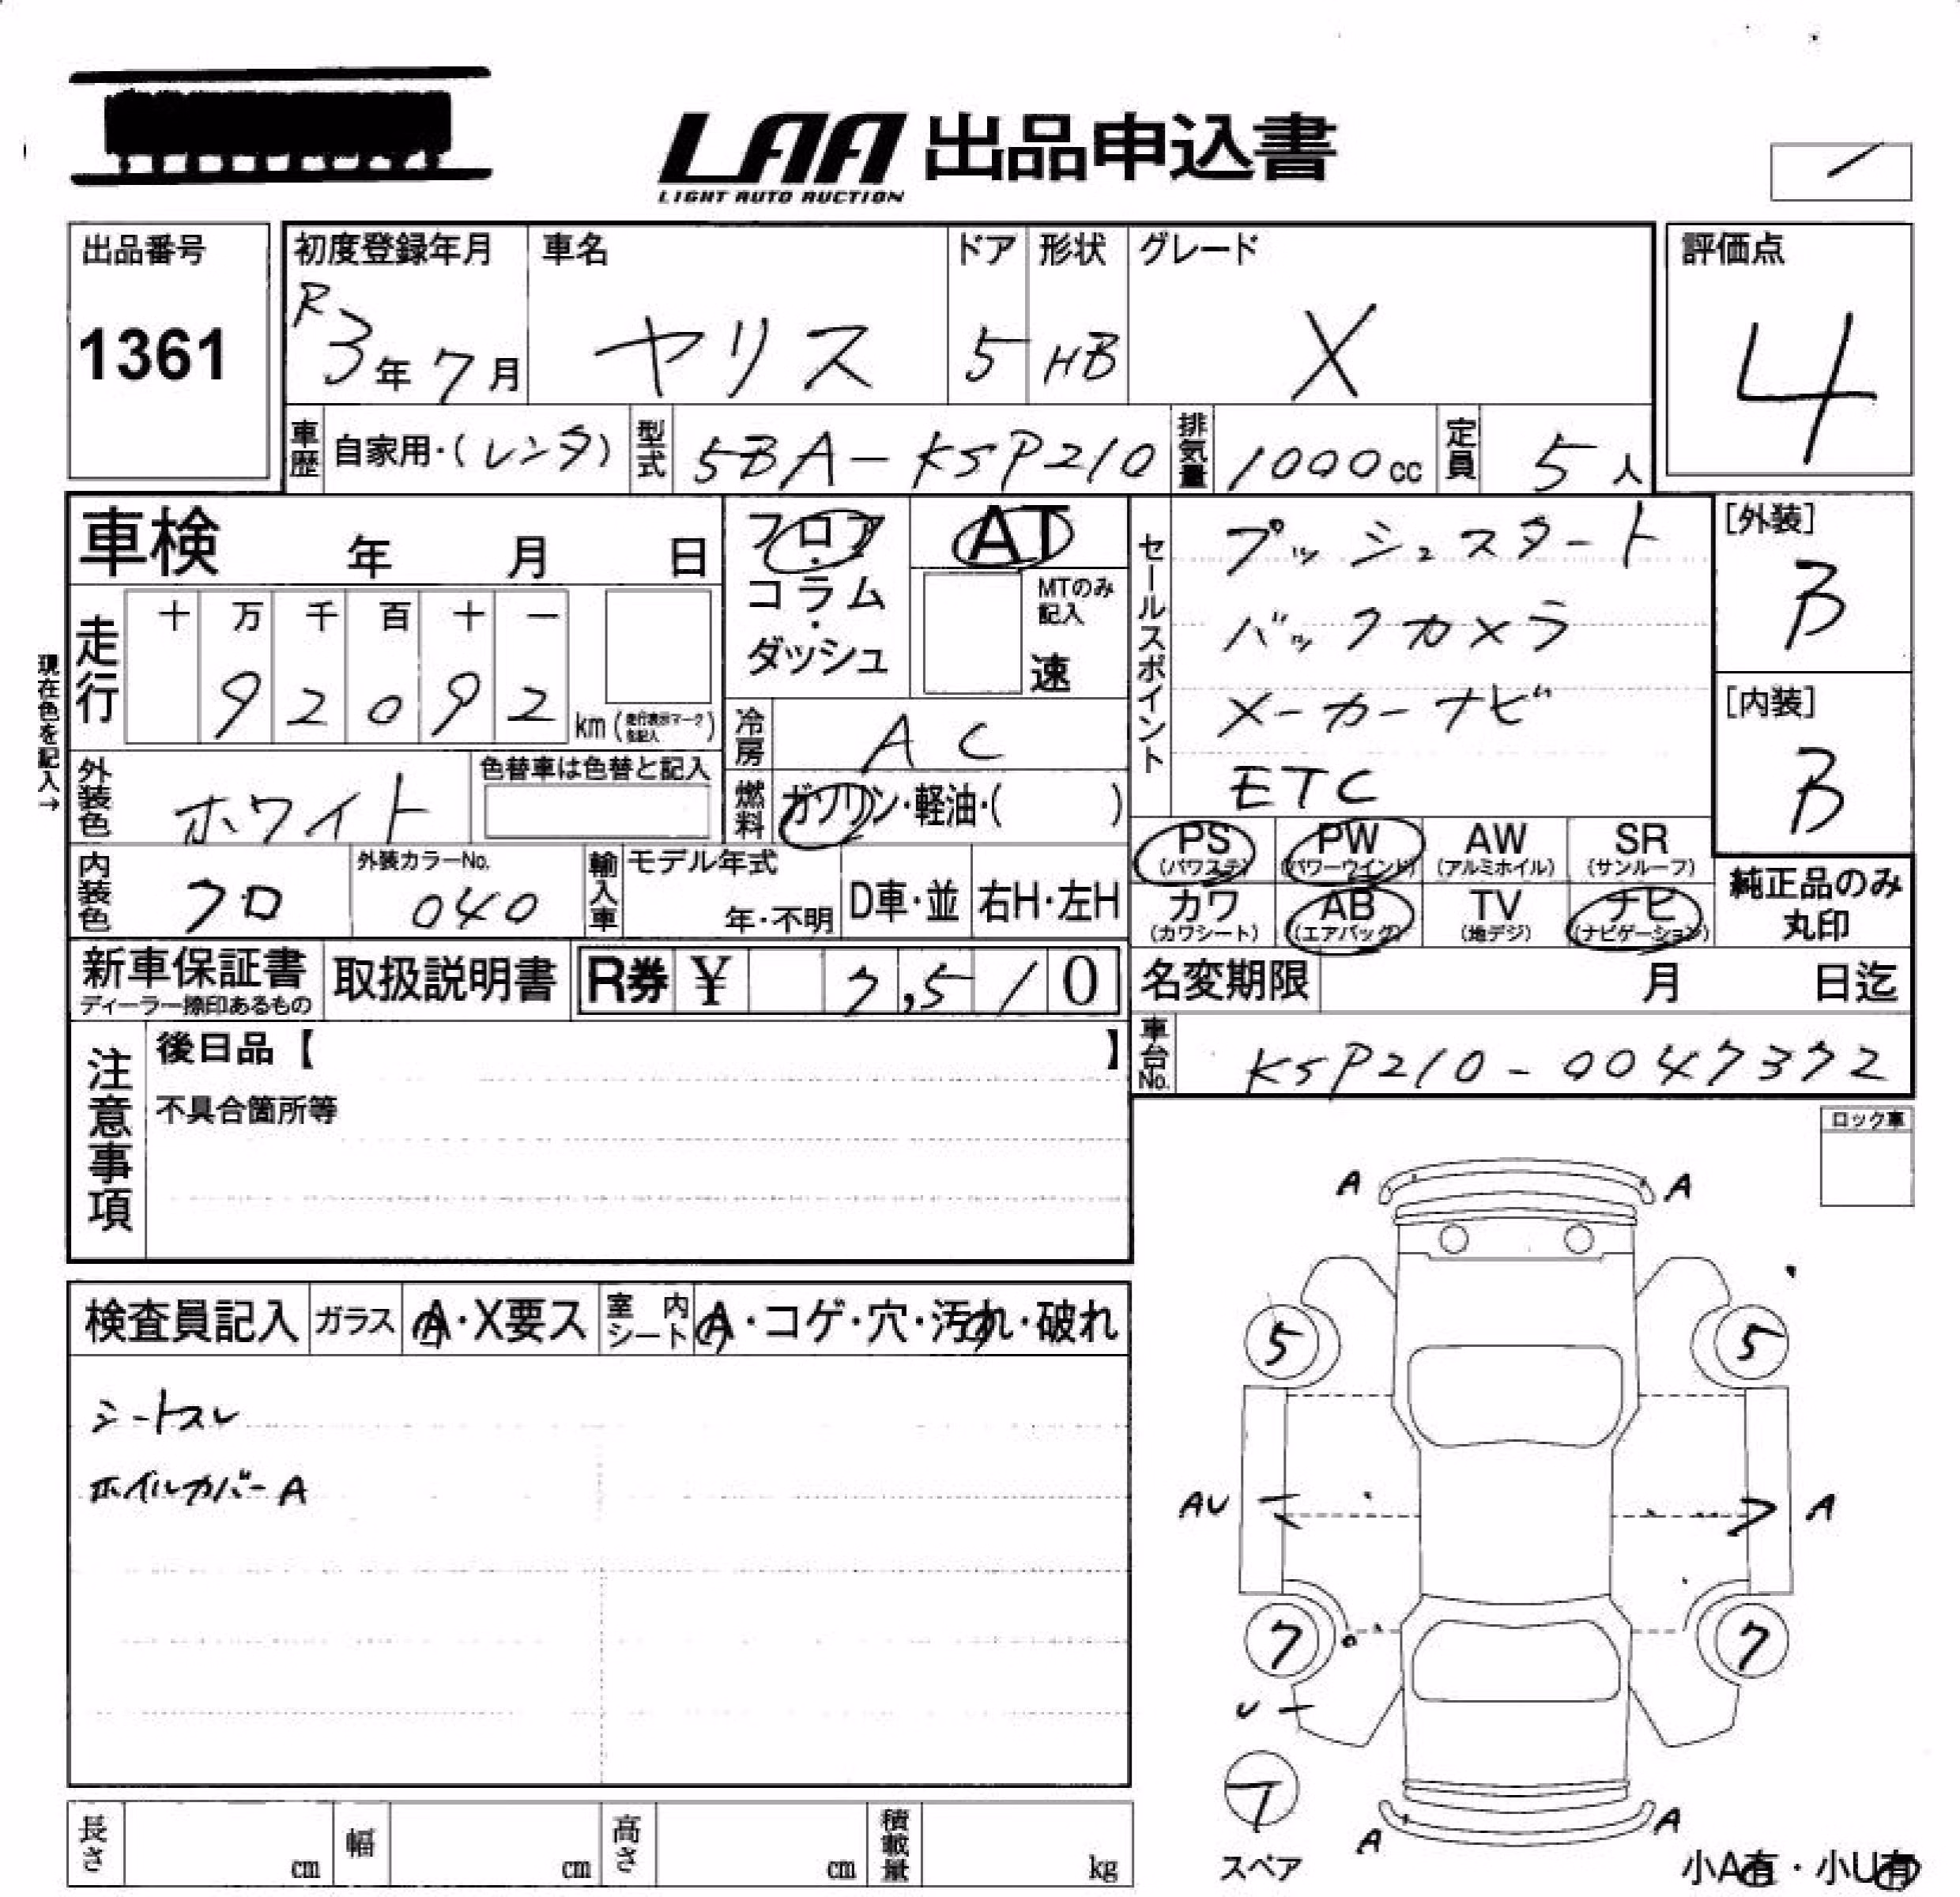 LAA 出品申込書
LIGHT AUTO AUCTION
出品番号
1361
初度登録年月
R3年7月
車名
ヤリス
ドア
5
形状
HB
グレード
X
評価点
4
車歴
自家用・(レンタ)
型式
5BA-KSP210
排気量
1000cc
定員
5人
車検 年 月 日
フロア・コラム・ダッシュ
AT
MTのみ記入
速
現在色を記入→
走行
十 万 千 百 十 一
9 2 0 9 2
km
冷房
AC
外装色
ホワイト
色替車は色替と記入
燃料
ガソリン・軽油・( )
内装色
クロ
外装カラーNo.
040
輸入車
モデル年式
年・不明
D車・並
右H・左H
セールスポイント
プッシュスタート
バックカメラ
メーカーナビ
ETC
[外装]
B
[内装]
B
PS (パワステ)
PW (パワーウインド)
AW (アルミホイル)
SR (サンルーフ)
カワ (カワシート)
AB (エアバッグ)
TV (地デジ)
ナビ (ナビゲーション)
純正品のみ丸印
新車保証書
ディーラー捺印あるもの
取扱説明書
R券 ¥ 7,510
名変期限 月 日迄
車台No.
KSP210-0047372
注意事項
後日品【 】
不具合箇所等
ロック車
検査員記入
ガラス
A・X要ス
室内シート
A・コゲ・穴・汚れ・破れ
シートスレ
ホイルカバーA
A A
5 5
AU A
7 7
U
T
スペア
A A
小A有・小U有
長さ cm
幅 cm
高さ cm
積載量 kg